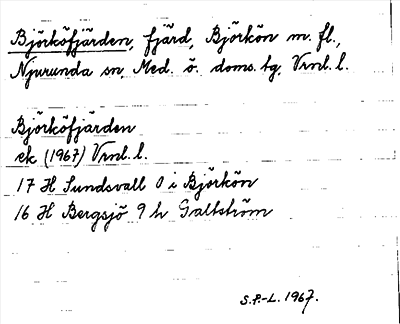 Björköfjärden, fjärd, Björkön m. fl.,
Njurunda sn, Med. ö. doms. tg, Vrnl. l.
Björköfjärden
ek (1967) Vrnl. l.
17 H Sundsvall 0 i Björkön
16 H Bergsjö 9 h Galtström
S.P.-L. 1967.